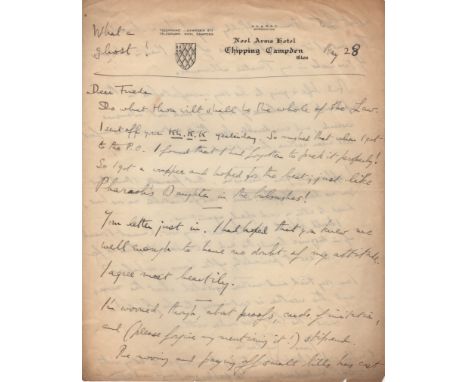 What a
ghost!
TELEPHONE: CAMPDEN 317
TELEGRAMS: NOEL, CAMPDEN
Noel Arms Hotel
Chipping Campden
Glos
May 28
Dear Frieda
Do what thou wilt shall be the whole of the Law.
I sent off your Kh.K.K yesterday. So rushed that when I got
to the P.O. I found that I had forgotten to pack it properly!
So I got a wrapper and hoped for the best; just like
Pharaoh's Daughter in the bulrushes!
Your letter just in. I had hoped that you knew me
well enough to have no doubt of my attitude.
I agree most heartily.
I'm worried, though, about proofs, mode, furniture,
and (please forgive my mentioning it!) stipend.
The moving and paying off small bills has cost